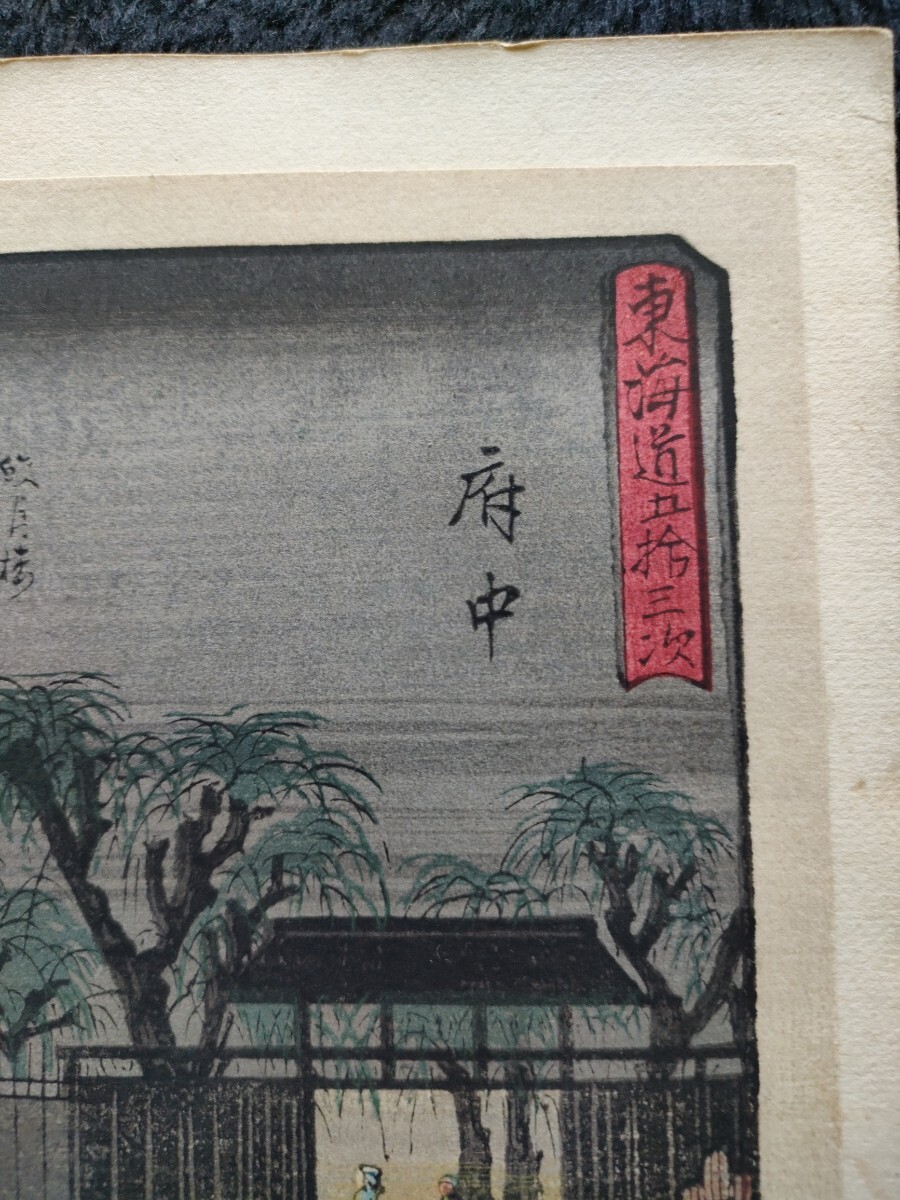 東海道五拾三次
府中